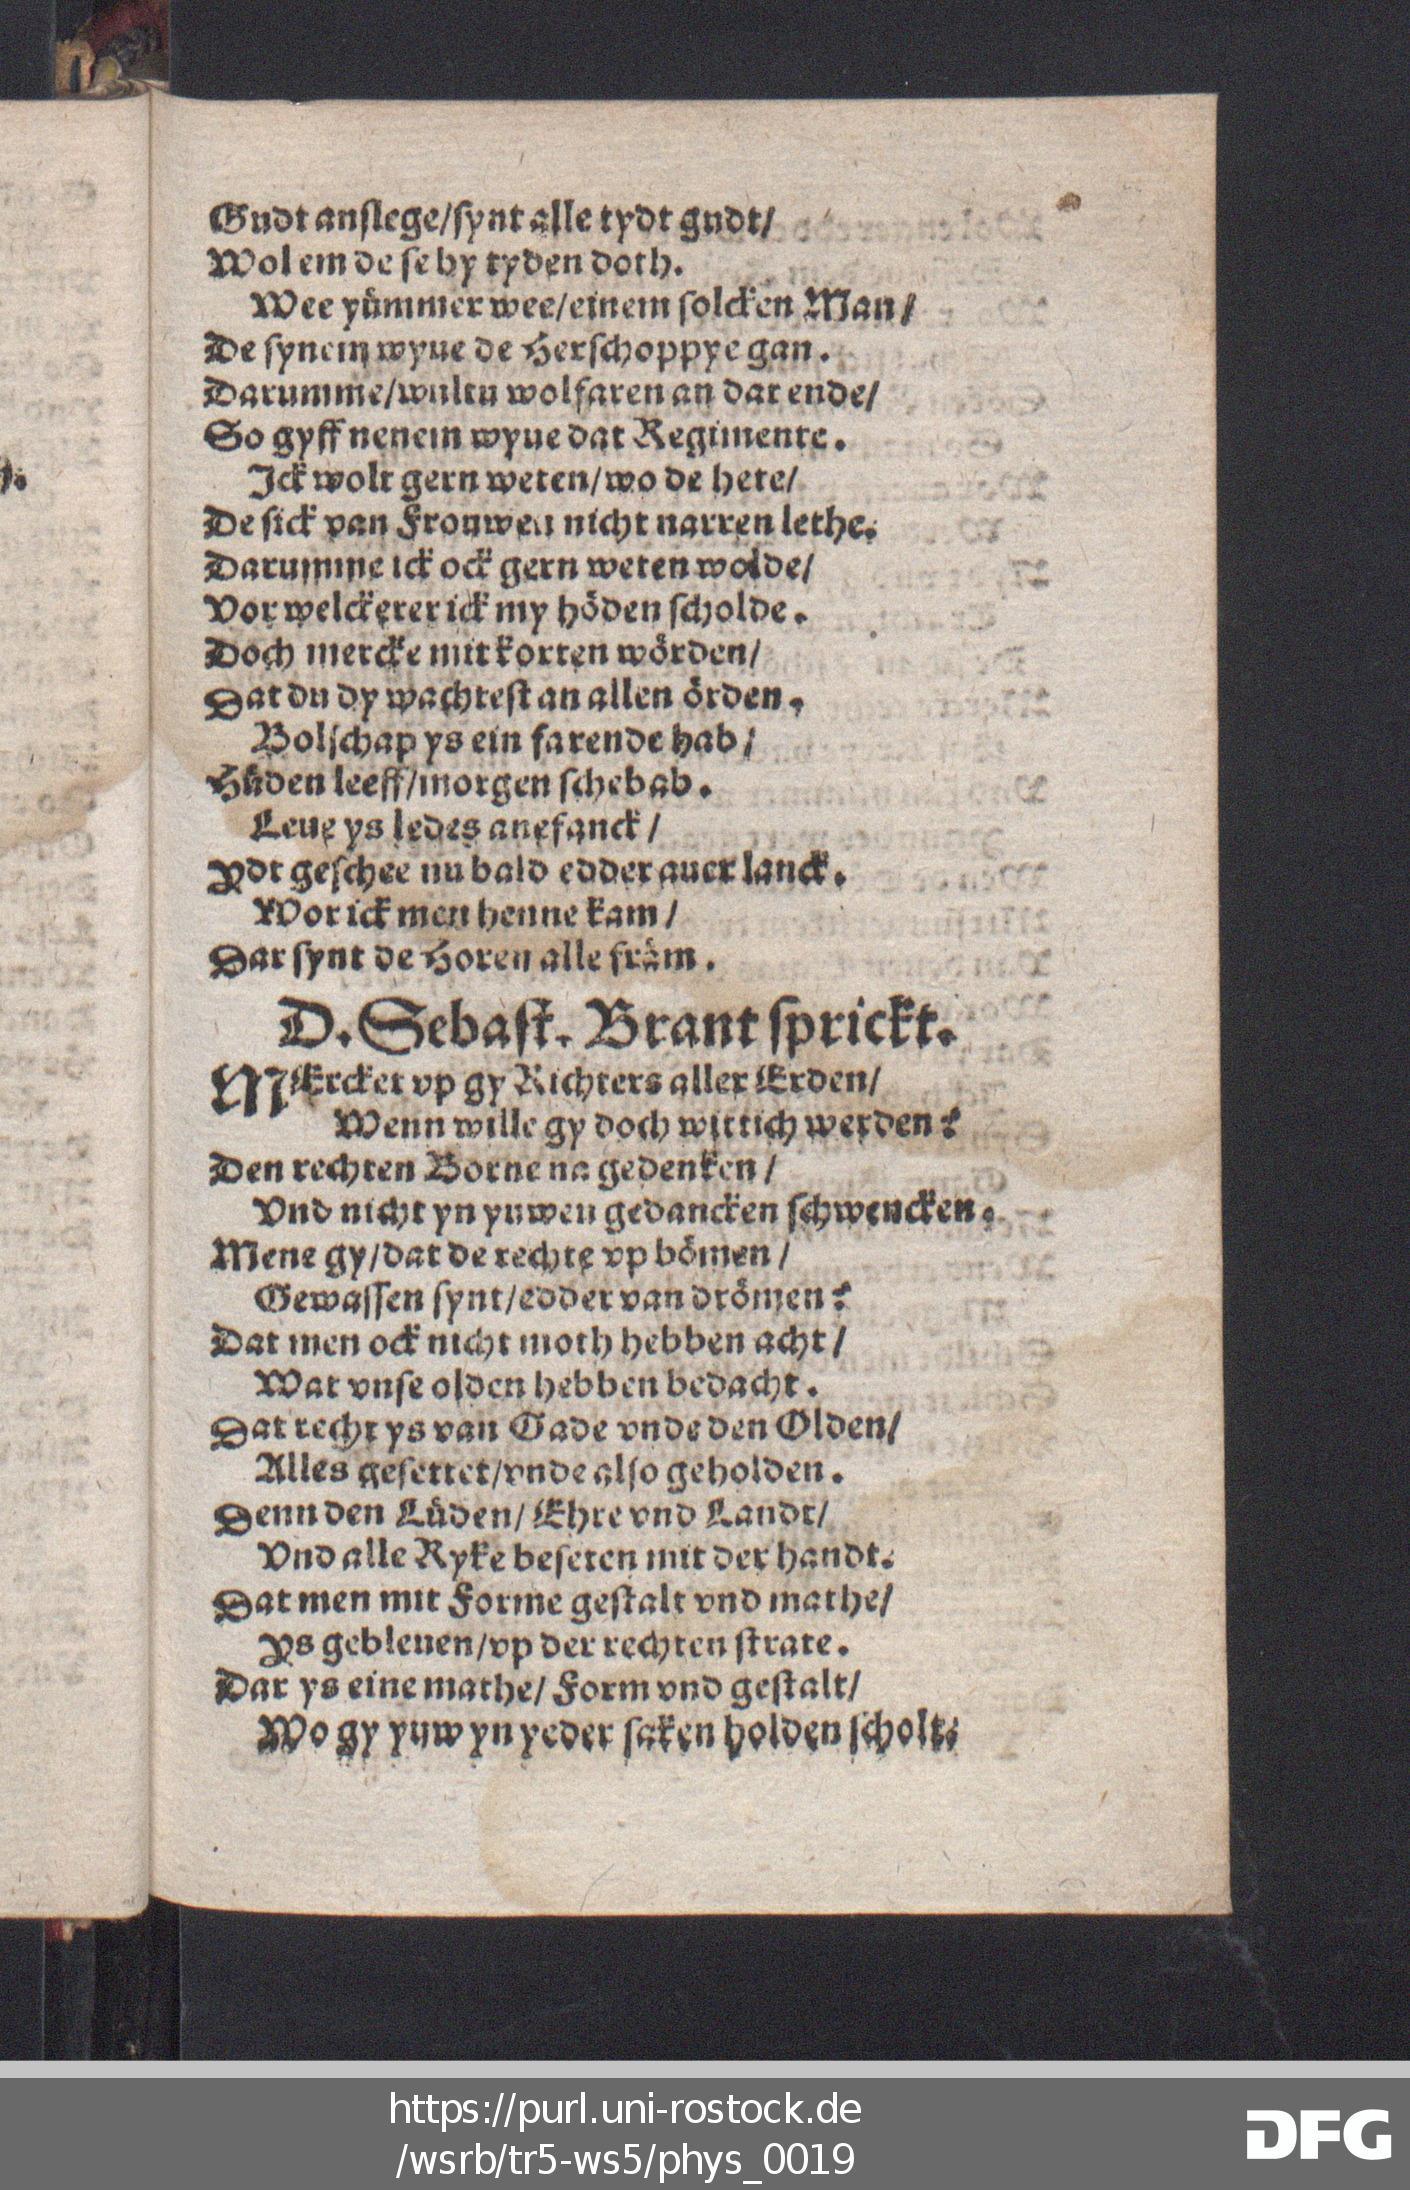 Gudt anslege/synt alle tydt gudt/
Wol em de se by tyden doth.
Wee yümmer wee/einem solcken Man/
De synem wyue de Herschoppye gan.
Darumme/wultu wolfaren an dat ende/
So gyff nenem wyue dat Regimente.
Ick wolt gern weten/wo de hete/
De sick van Frouwen nicht narren lethe.
Darumme ick ock gern weten wolde/
Vor welckerer ick my höden scholde.
Doch mercke mit korten wörden/
Dat du dy wachtest an allen örden.
Bolschap ys ein farende hab/
Hüden leeff/morgen schebab.
Leue ys ledes anefanck/
Ydt geschee nu bald edder auer lanck.
Wor ick men henne kam/
Dar synt de Horen alle främ.
D. Sebast. Brant sprickt.
MErcket vp gy Richters aller Erden/
Wenn wille gy doch wittich werden?
Den rechten Borne na gedenken/
Vnd nicht yn yuwen gedancken schwencken.
Mene gy/dat de rechte vp bömen/
Gewassen synt/edder van drömen?
Dat men ock nicht moth hebben acht/
Wat vnse olden hebben bedacht.
Dat recht ys van Gade vnde den Olden/
Alles gesettet/vnde also geholden.
Denn den Lüden/Ehre vnd Landt/
Vnd alle Ryke beseten mit der handt.
Dat men mit Forme gestalt vnd mathe/
Ys gebleuen/vp der rechten strate.
Dar ys eine mathe/Form vnd gestalt/
Wo gy yuw yn yeder saken holden scholt.
https://purl.uni-rostock.de
/wsrb/tr5-ws5/phys_0019
DFG